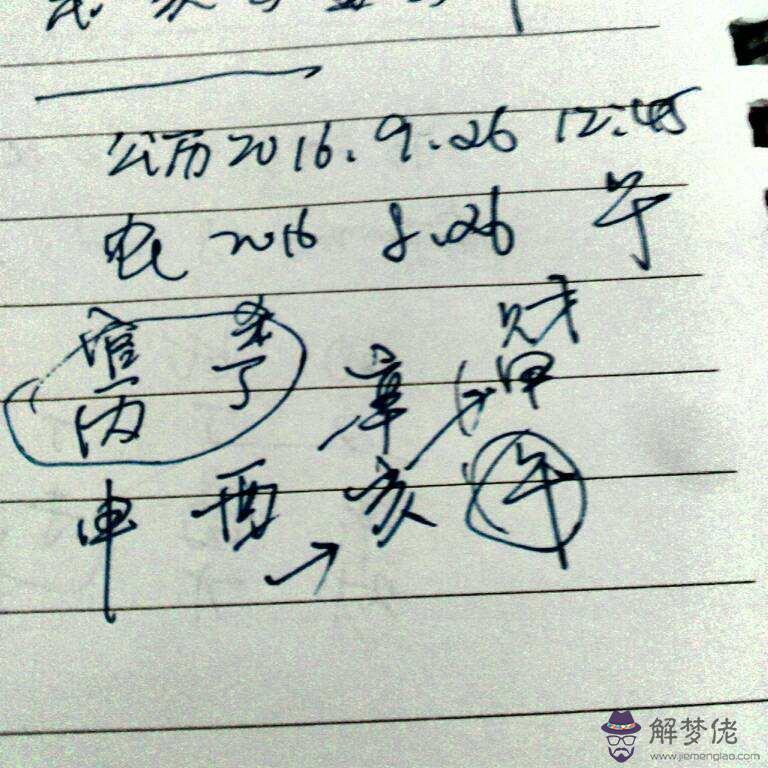 公历2016.9.26 12:45
农2016 8.26 午
官 杀 财
丙 丁 辛 甲
申 酉 亥 午
解梦佬
www.jiemenglao.com